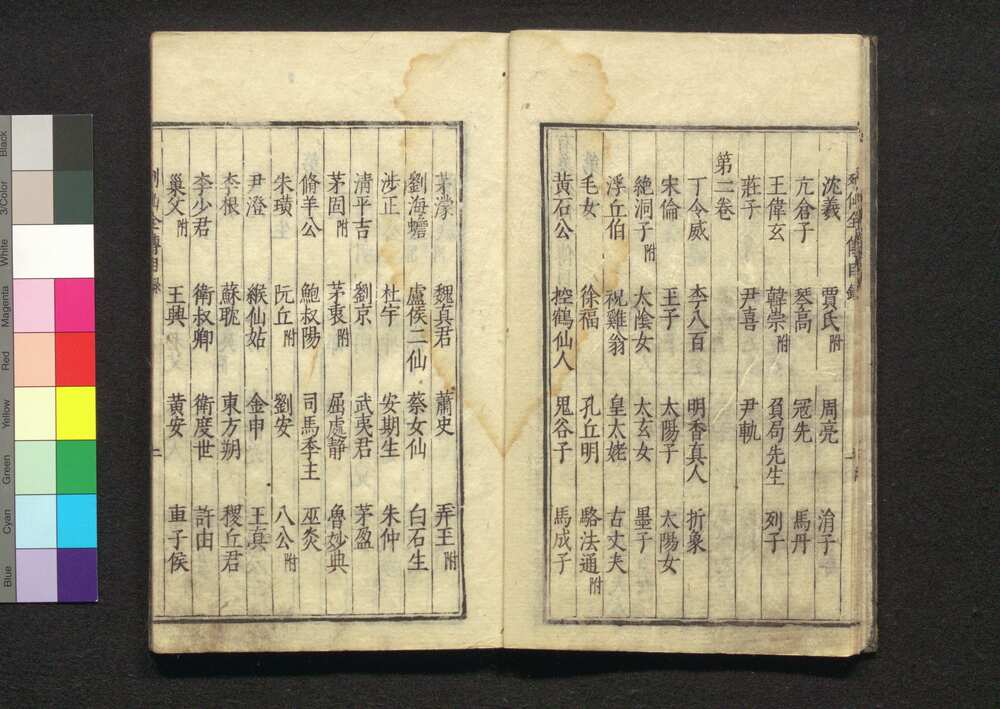 列仙全傳目錄
沈羲 賈氏附 周亮 涓子
亢倉子 琴高 冦先 馬丹
王偉玄 韓崇附 負局先生 列子
莊子 尹喜 尹軌
第二卷
丁令威 李八百 明香真人 折象
宋倫 王子 太陽子 太陽女
絶洞子附 太陰女 太玄女 墨子
浮丘伯 祝雞翁 皇太姥 古丈夫
毛女 徐福 孔丘明 駱法通附
黃石公 控鶴仙人 鬼谷子 馬成子
茅濛 魏真君 蕭史 弄玉附
劉海蟾 盧侯二仙 蔡女仙 白石生
涉正 杜宇 安期生 朱仲
清平吉 劉京 武夷君 茅盈
茅固附 茅衷附 屈處靜 魯妙典
脩羊公 鮑叔陽 司馬季主 巫炎
朱璜 阮丘附 劉安 八公附
尹澄 緱仙姑 金申 王真
李根 蘇耽 東方朔 稷丘君
李少君 衛叔卿 衛度世 許由
巢父附 王興 黃安 車子侯
列仙全傳目錄 二
Black
3/Color
White
Magenta
Red
Yellow
Green
Cyan
Blue